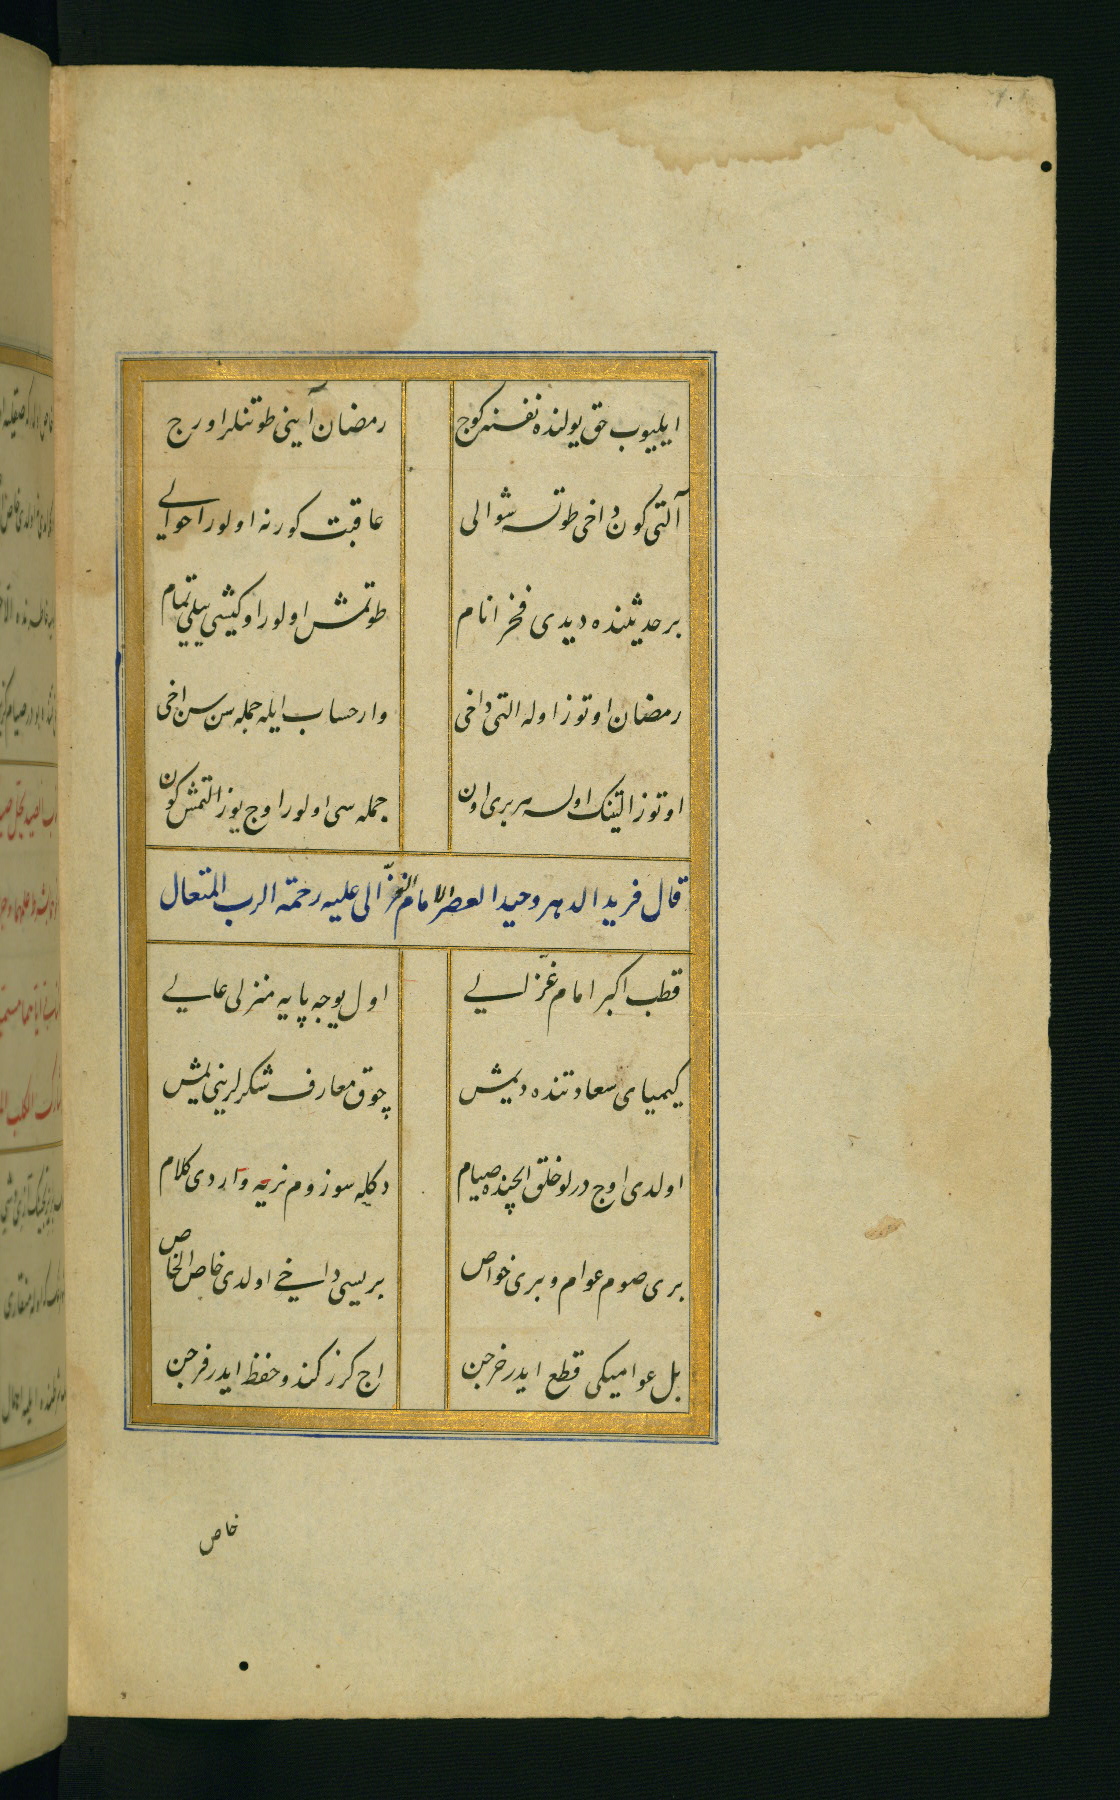 ایلیوب حق یولنده نفسنه کوج رمضان آینی طوتنلر اورج
آلتی کون داخی طوتسه شوالی عاقبت کورنه اولور احوالی
بر حدیثنده دیدی فخر انام طوتمش اولور اوکیشی ییلی تمام
رمضان اوتوز اوله التی داخی وار حساب ایله جمله سن سن اخی
اوتوز التینک اوله هر بری اون جمله سی اولور اوج یوز التمش کون
قال فرید الدهر وحید العصر الامام الغزّالی علیه رحمة الرب المتعال
قطب اکبر امام غزّالی اول یوجه پایه منزلی عالی
کیمیای سعادتنده دیمش چوق معارف شکرلرینی یمش
اولدی اوج درلو خلق ایچنده صیام دکله سوزوم نریه واردی کلام
بری صوم عوام و بری خواص بریسی داخی اولدی خاص الخاص
بل عوامیکی قطع ایدر خرجن اج کرز کندو حفظ ایدر فرجن
خاص